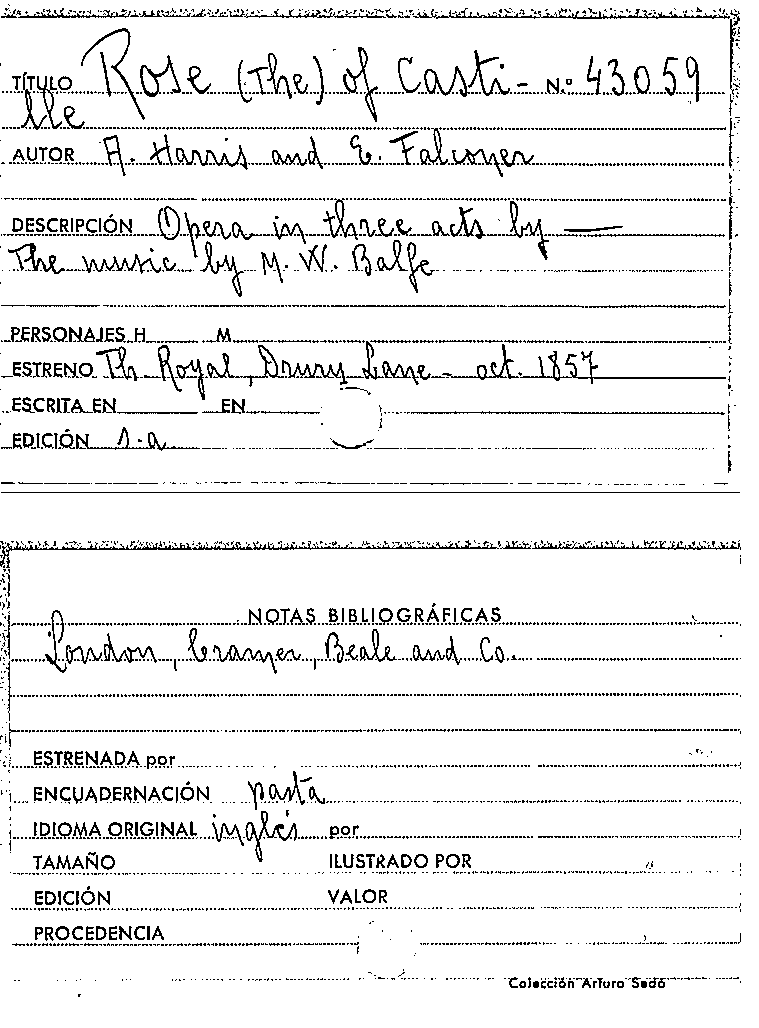 TÍTULO Rose (The) of Casti- N.º 43059
lle
AUTOR A. Harris and E. Falconer
DESCRIPCIÓN Opera in three acts by —
The music by M. W. Balfe
PERSONAJES H M
ESTRENO Th. Royal, Drury Lane - oct. 1857
ESCRITA EN EN
EDICIÓN s.a.
NOTAS BIBLIOGRÁFICAS
London, Cramer, Beale and Co.
ESTRENADA por
ENCUADERNACIÓN pasta
IDIOMA ORIGINAL inglés por
TAMAÑO ILUSTRADO POR
EDICIÓN VALOR
PROCEDENCIA
Colección Arturo Sedó